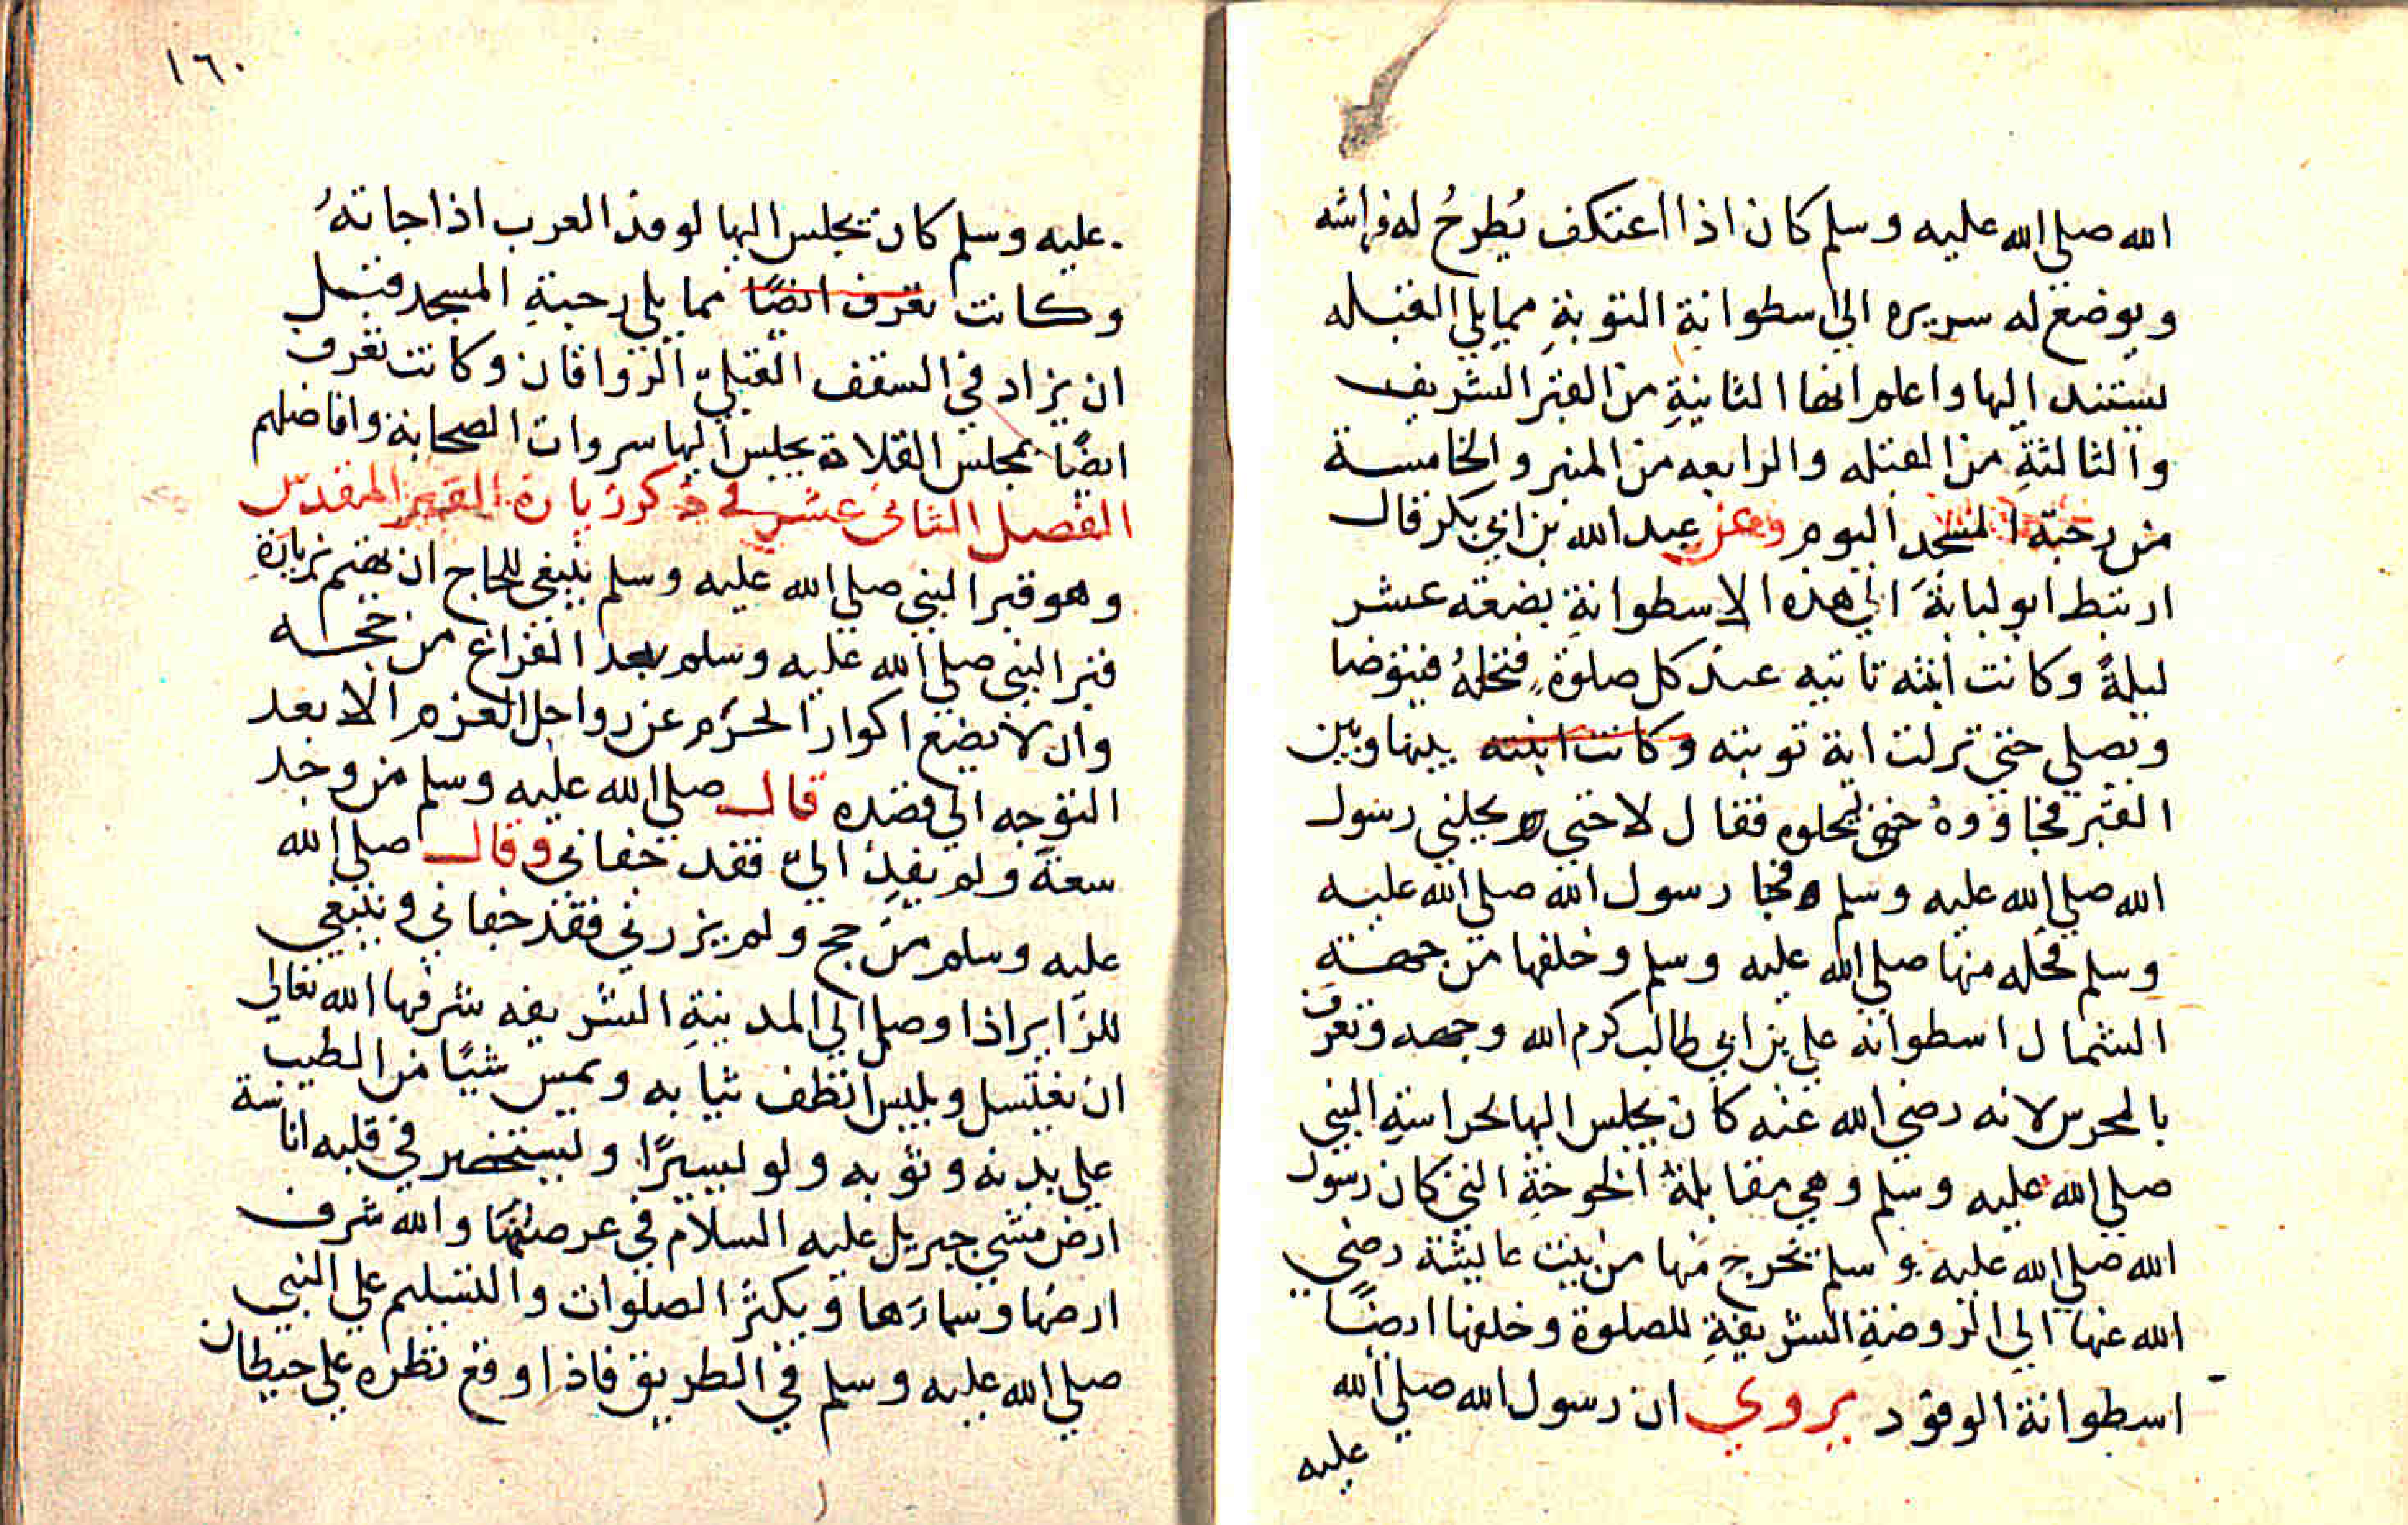 الله صلي الله عليه وسلم كان اذا اعتكف يُطرحُ له فراشه
ويوضع له سريره الي اسطوانة التوبةِ مما يلي القبله
يستند اليها واعلم انها الثانيةِ من القبر الشريف
والثالثةِ من القبله والرابعه من المنبر والخامسة
من رحبة المسجد اليوم وعن عبد الله بن ابي بكر قال
ارتبط ابو لبابةَ الي هذه الاسطوانةِ بضعه عشر
ليلةً وكانت ابنته تاتيه عند كل صلوةٍ فتحلهُ فيتوضا
ويصلي حتي نزلت اية توبته وكانت ابنته بينها وبين
القبر فجاووهُ حتي ليحلوه فقال لا حتي يحلني رسول
الله صلي الله عليه وسلم فجا رسول الله صلي الله عليه
وسلم فحله منها صلي الله عليه وسلم وخلفها من جهة
الشمال اسطوانه علي بن ابي طالب كرم الله وجهه وتعرف
بالمحرس لانه رضي الله عنه كان يجلس اليها لحراسةِ النبي
صلي الله عليه وسلم وهي مقابلةُ الخوخةِ التي كان رسول
الله صلي الله عليه وسلم يخرج منها من بيت عايشة رضي
الله عنها الي الروضةِ الشريفةِ للصلوة وخلفها ايضًا
اسطوانة الوفود يروي ان رسول الله صلي الله
عليه
١٦٠
عليه وسلم كان يجلس اليها لوفد العرب اذا جاتهُ
وكانت تعرف ايضًا مما يلي رحبةِ المسجد قبل
ان يزاد في السقف القبليّ الرواقان وكانت تعرف
ايضًا بمجلس القلادة يجلس اليها سروات الصحابة وافاضلهم
الفصل الثاني عشر في ذكر زيارة القبر المقدس
وهو قبر النبي صلي الله عليه وسلم ينبغي للحاج ان يهتم بزيارةِ
قبر النبي صلي الله عليه وسلم بعد الفراغ من حجه
وان لا يضع اكوار الحزم عن رواحل العزم الا بعد
التوجه الي قصده قال صلي الله عليه وسلم من وجد
سعة ولم يفِد اليّ فقد جفاني وقال صلي الله
عليه وسلم من حج ولم يزرني فقد جفاني وينبغي
للزاير اذا وصل الي المدينةِ الشريفه شرفها الله تعالي
ان يغتسل ويلبس انظف ثيابه ويمس شيًا من الطيب
علي بدنه وثوبه ولو يسيرًا وليستحضر في قلبه انا
ارض مشي جبريل عليه السلام في عرصتها والله شرف
ارضها وسماءها ويكثر الصلوات والتسليم علي النبي
صلي الله عليه وسلم في الطريق فاذا وقع نظره علي حيطان